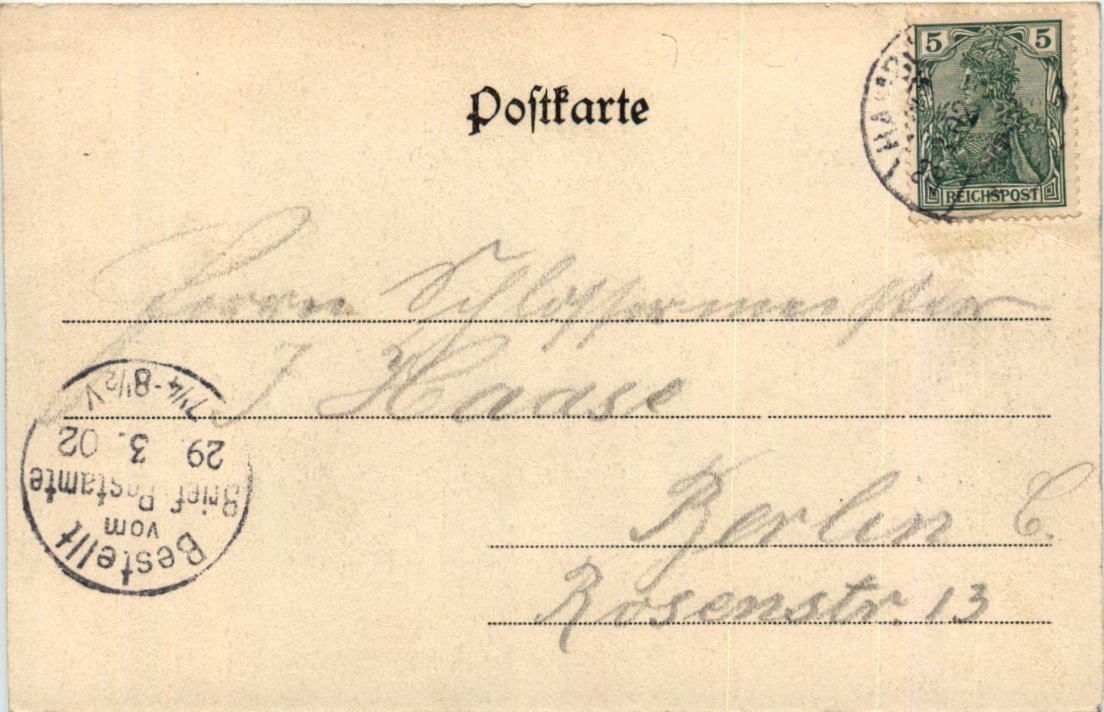 Postkarte
5 5
REICHSPOST
Herrn Schlossermeister
J Haase
Berlin C.
Rosenstr. 13
Bestellt
vom
Brief-Postamte
29. 3. 02
7¼-8½V.